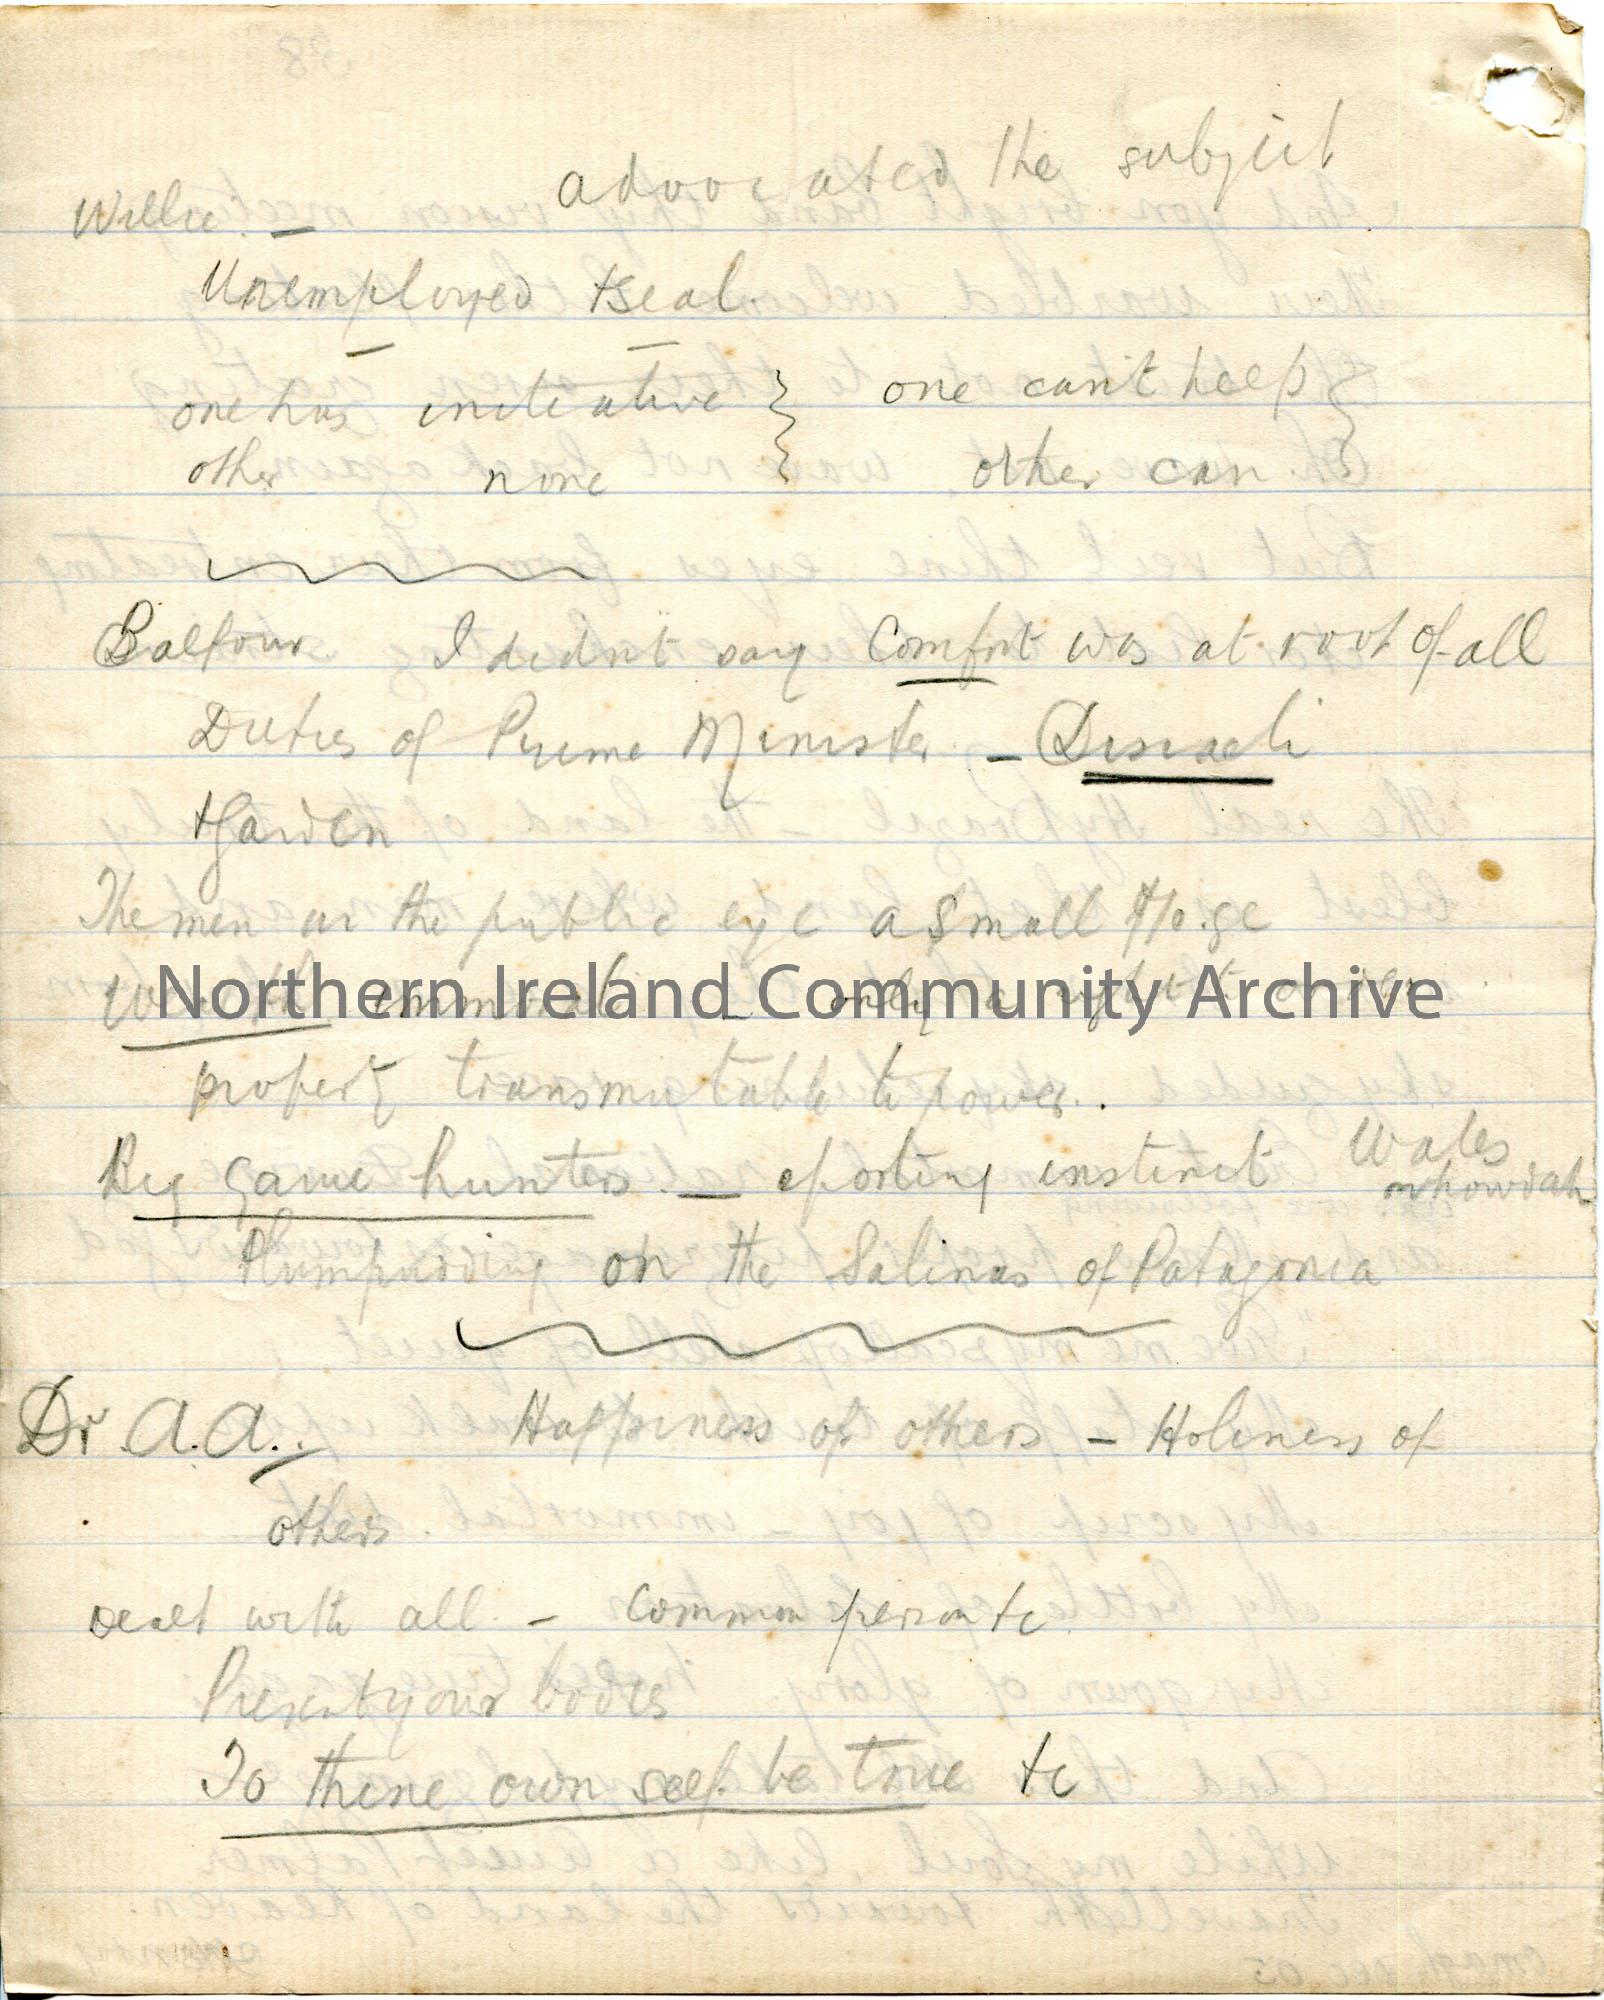 advocated the subject
Willie. —
Unemployed & seal.
one has initiative } one can't help }
other none } other can }
Balfour. I didn't say Comfort was at root of all
Duties of Prime Minister – Disraeli
& Garden
The men in the public eye a small
immoral – only a
property transmutable to power.
Big game hunters. — sporting instinct Wales
on howdah
Plumpudding on the Salinas of Patagonia
Dr. A.A. Happiness of others – Holiness of
others.
Dealt with all – common person &c.
Present your bodies
To thine own self be true &c
Northern Ireland Community Archive